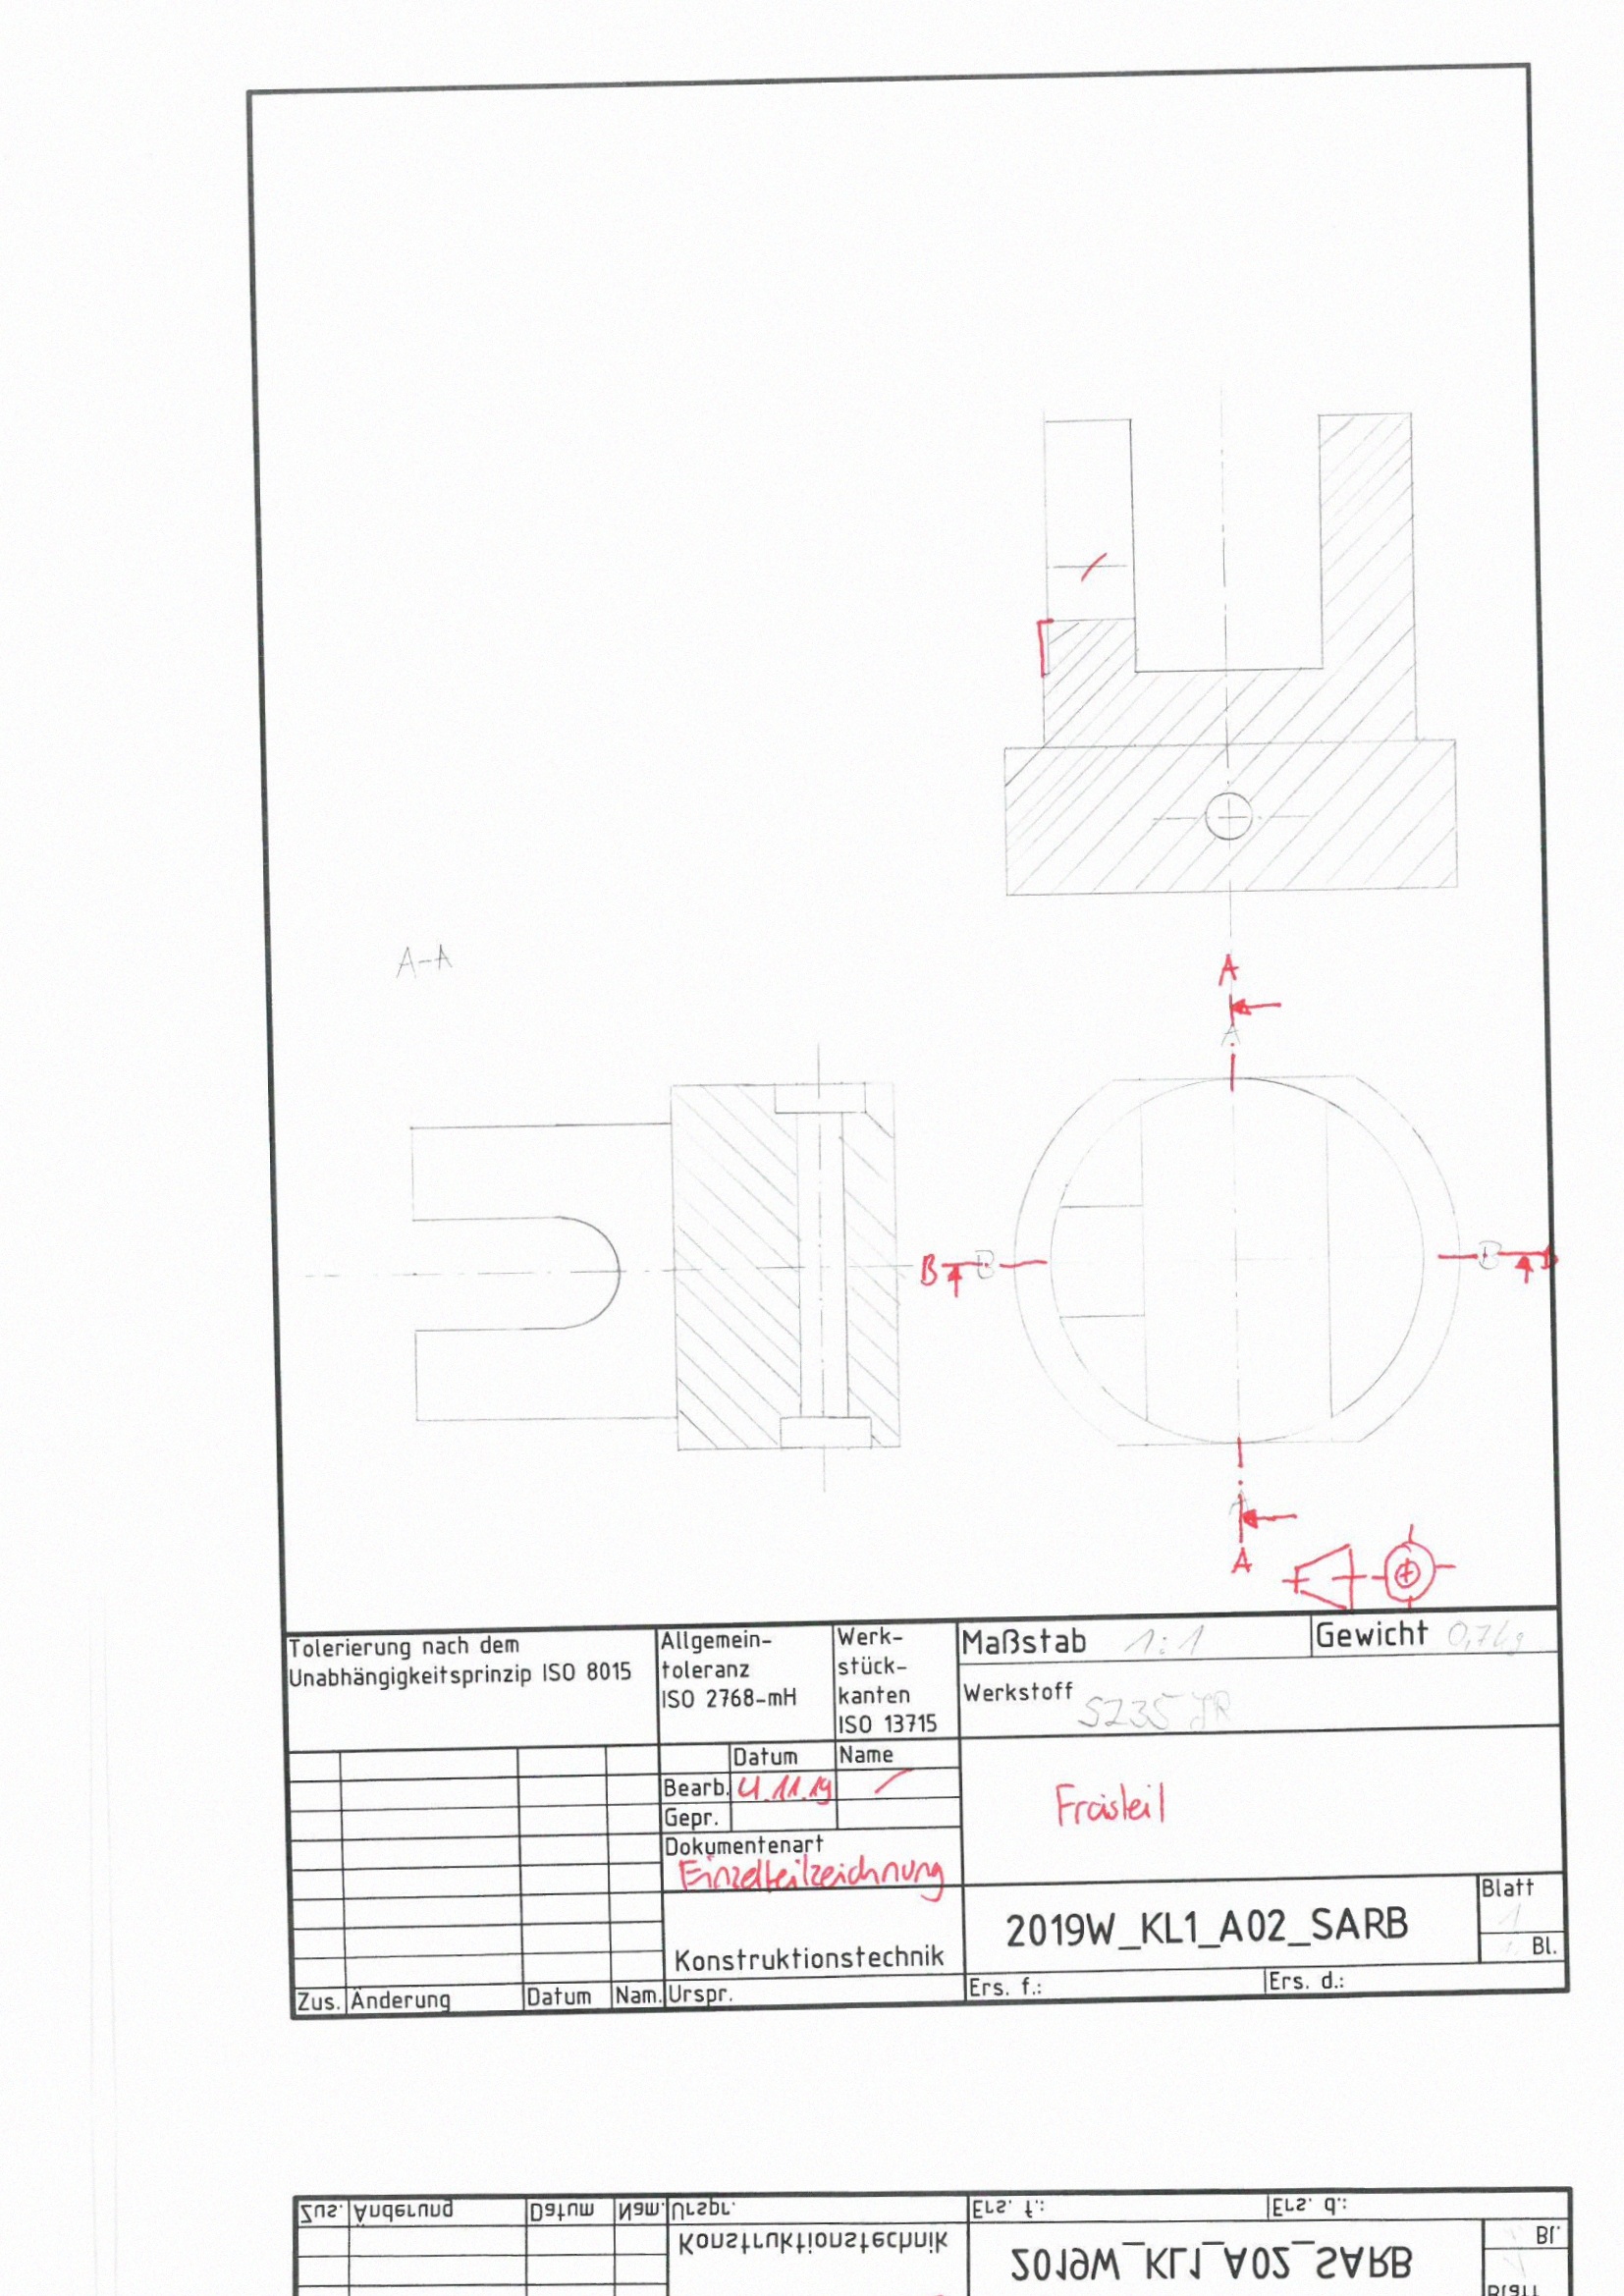 A-A
A
A
B
B
B
B
A
A
Tolerierung nach dem
Unabhängigkeitsprinzip ISO 8015
Allgemein-
toleranz
ISO 2768-mH
Werk-
stück-
kanten
ISO 13715
Maßstab 1:1
Gewicht 0,7kg
Werkstoff S235 JR
Datum Name
Bearb. 4.11.19
Gepr.
Dokumentenart
Einzelteilzeichnung
Fräsleil
Konstruktionstechnik
2019W_KL1_A02_SARB
Blatt
1
Bl.
Zus. Änderung Datum Nam. Urspr. Ers. f.: Ers. d.:
Zus. Änderung Datum Nam. Urspr. Ers. f.: Ers. d.:
Konstruktionstechnik
2019W_KL1_A02_SARB
Bl.
Blatt